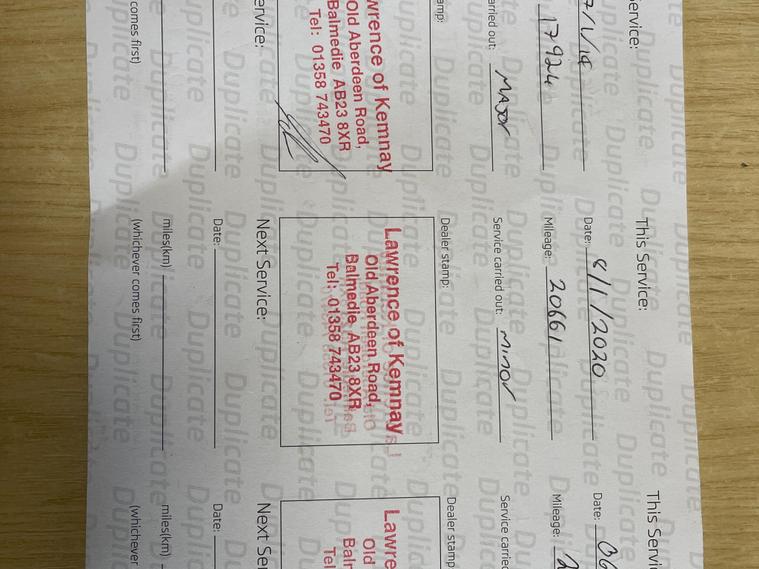 Service:
7/1/19
17924
carried out: MAJOR
amp:
wrence of Kemnay
Old Aberdeen Road,
Balmedie AB23 8XR
Tel: 01358 743470
ervice:
comes first)
This Service:
Date: 8/1/2020
Mileage: 20661
Service carried out: Minor
Dealer stamp:
Lawrence of Kemnay
Old Aberdeen Road,
Balmedie AB23 8XR
Tel: 01358 743470
Next Service:
Date:
miles(km)
(whichever comes first)
This Servi
Date: 06
Mileage: 2
Service carrie
Dealer stamp
Lawre
Old
Balm
Tel
Next Ser
Date:
miles(km)
(whichever
Duplicate